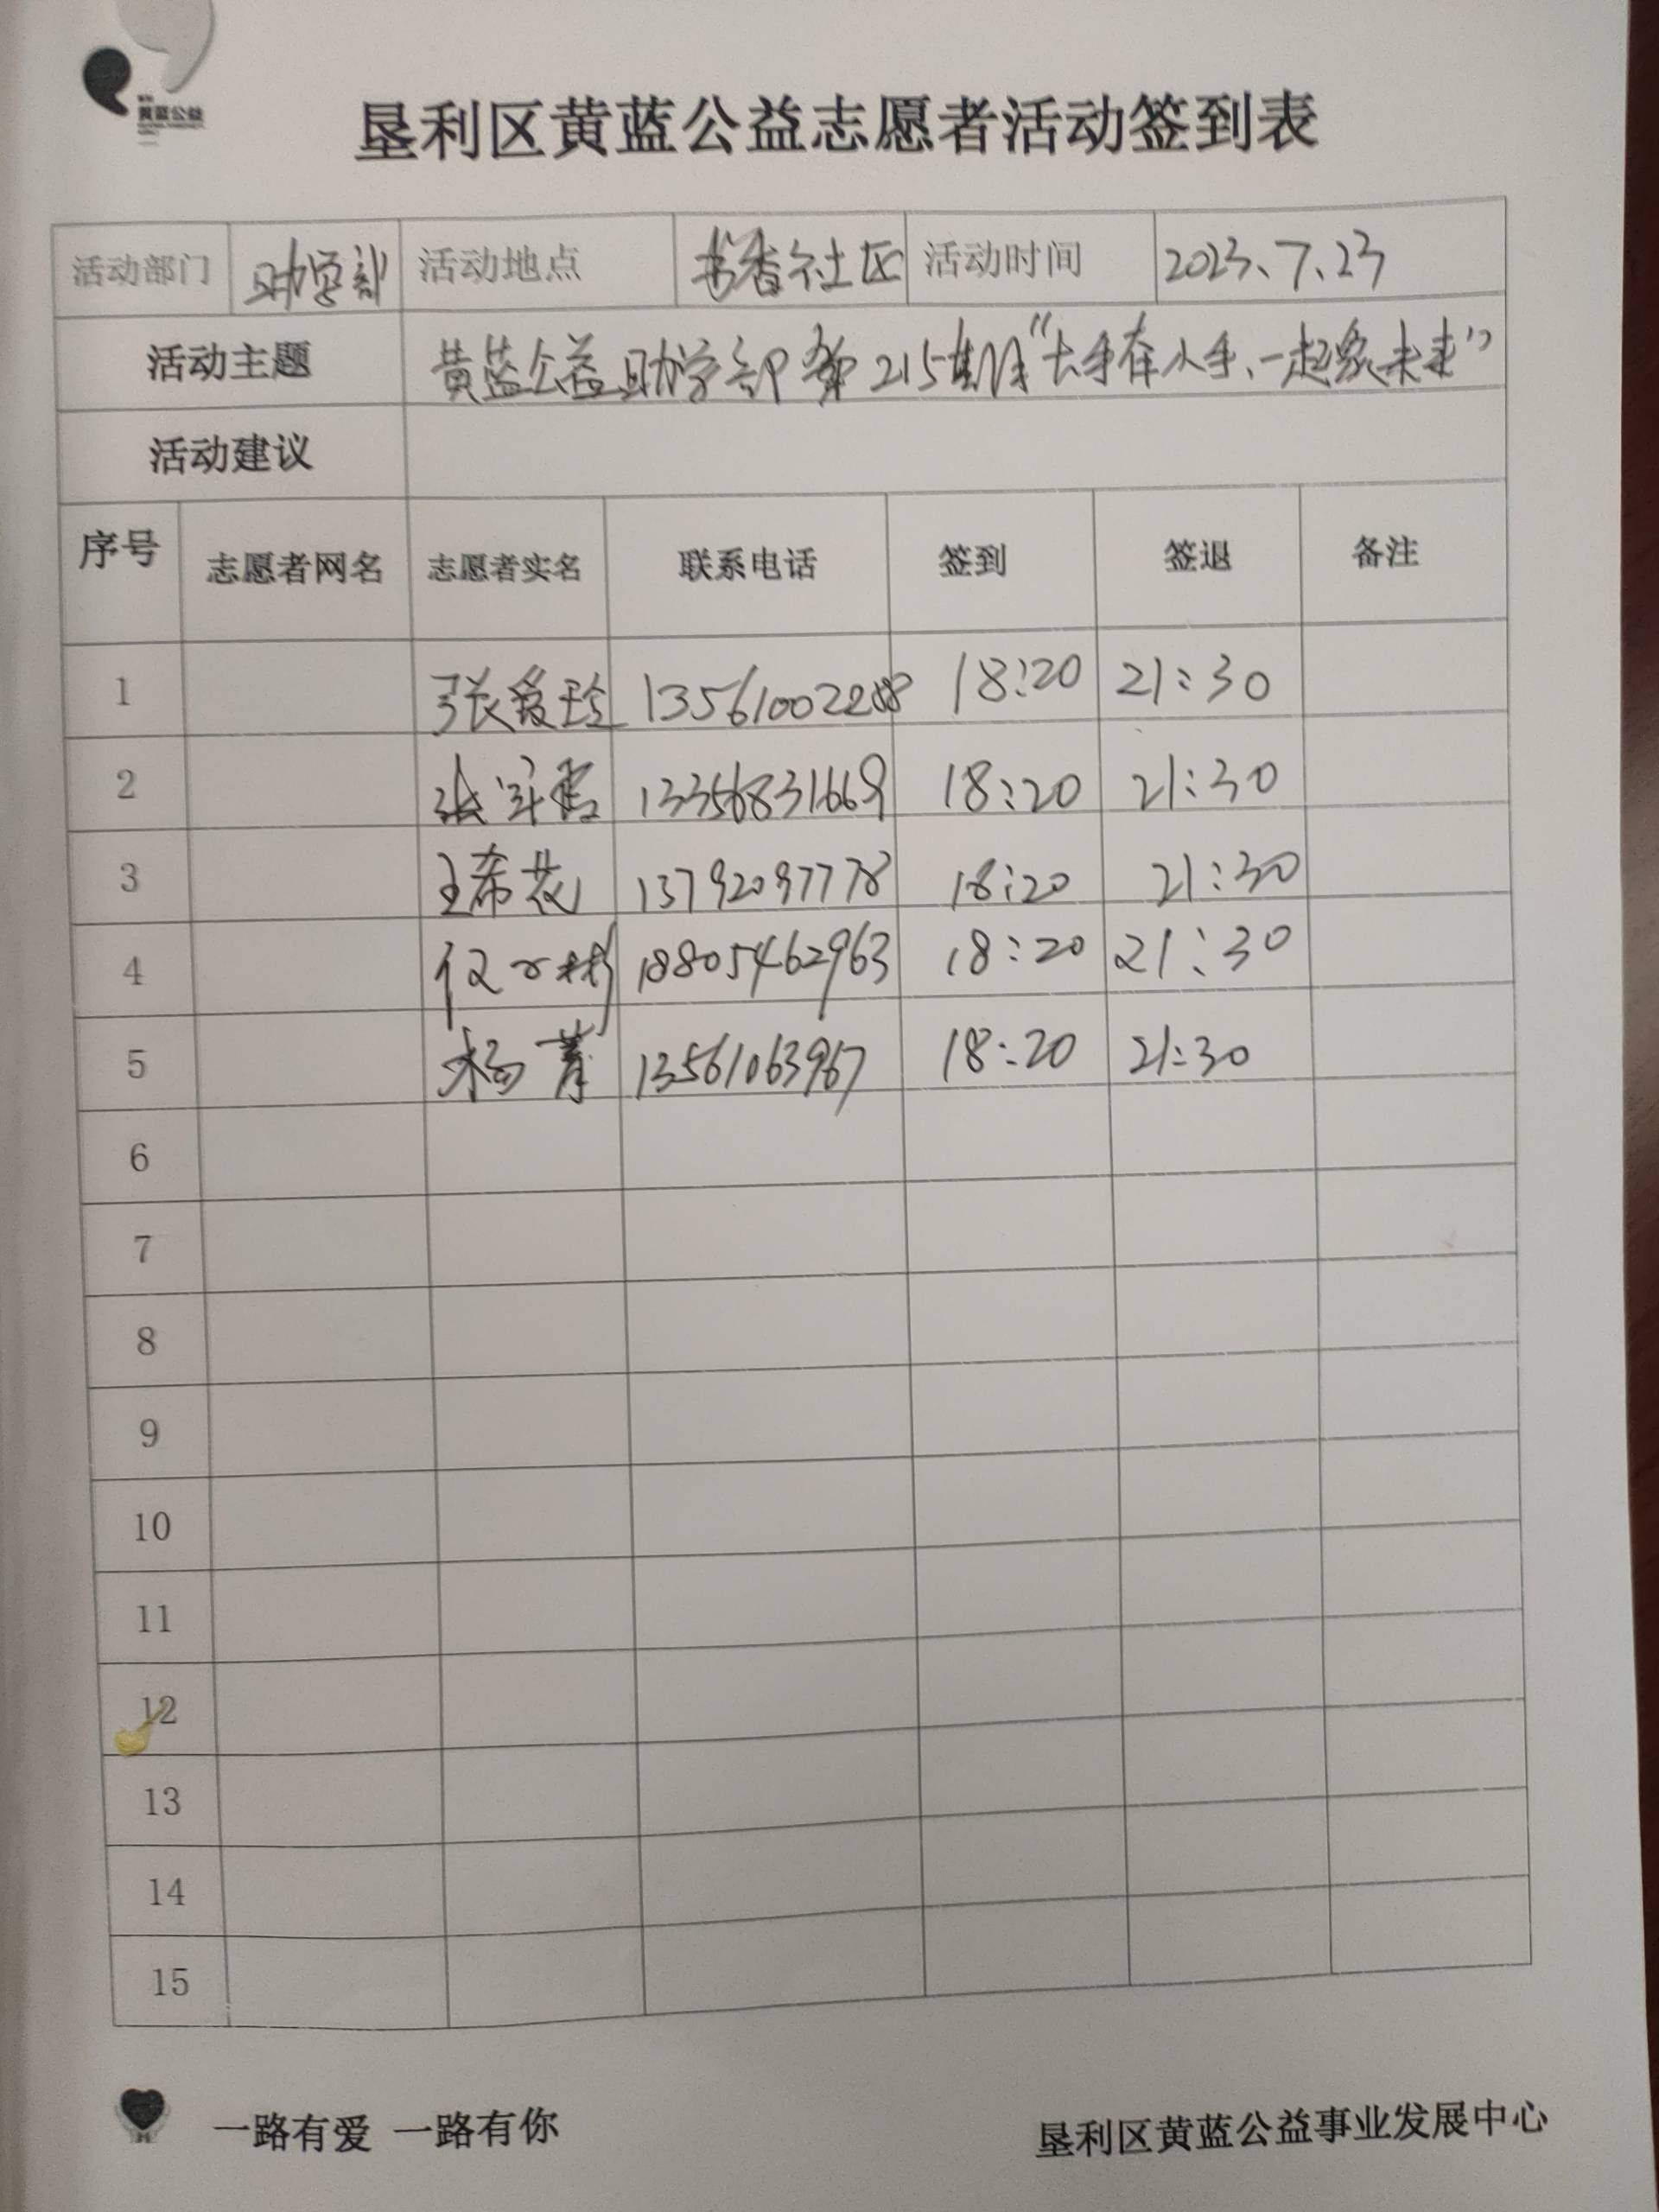 黄蓝公益
垦利区黄蓝公益志愿者活动签到表
活动部门 助学部 活动地点 书香社区 活动时间 2023、7、23
活动主题 黄蓝公益助学部第215期"大手牵小手、一起家未来"
活动建议
序号 志愿者网名 志愿者实名 联系电话 签到 签退 备注
1 张爱玲 13561002288 18:20 21:30
2 张 13356831669 18:20 21:30
3 王希花 13792097778 18:20 21:30
4 18805462963 18:20 21:30
5 杨菁 13561063967 18:20 21:30
6
7
8
9
10
11
12
13
14
15
一路有爱 一路有你 垦利区黄蓝公益事业发展中心